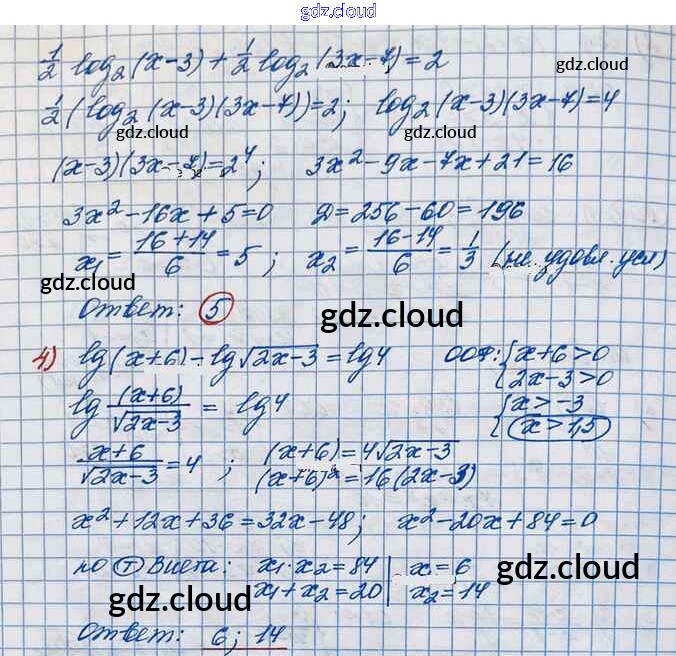 gdz.cloud
gdz.cloud
1/2 log₂(x-3) + 1/2 log₂(3x-7) = 2
1/2(log₂(x-3)(3x-7)) = 2; log₂(x-3)(3x-7) = 4
gdz.cloud gdz.cloud
(x-3)(3x-7) = 2⁴; 3x² - 9x - 7x + 21 = 16
3x² - 16x + 5 = 0 Д = 256 - 60 = 196
x₁ = (16+14)/6 = 5; x₂ = (16-14)/6 = 1/3 (не удовл. усл)
gdz.cloud gdz.cloud
Ответ: 5
gdz.cloud
4) lg(x+6) - lg√(2x-3) = lg4 ООФ: {x+6>0
{2x-3>0
lg (x+6)/√(2x-3) = lg4 {x>-3
{x>1,5
(x+6)/√(2x-3) = 4; (x+6) = 4√(2x-3)
(x+6)² = 16(2x-3)
gdz.cloud
x² + 12x + 36 = 32x - 48; x² - 20x + 84 = 0
по т Виета: x₁·x₂ = 84 | x₁ = 6
x₁+x₂ = 20 | x₂ = 14
gdz.cloud
gdz.cloud
Ответ: 6; 14